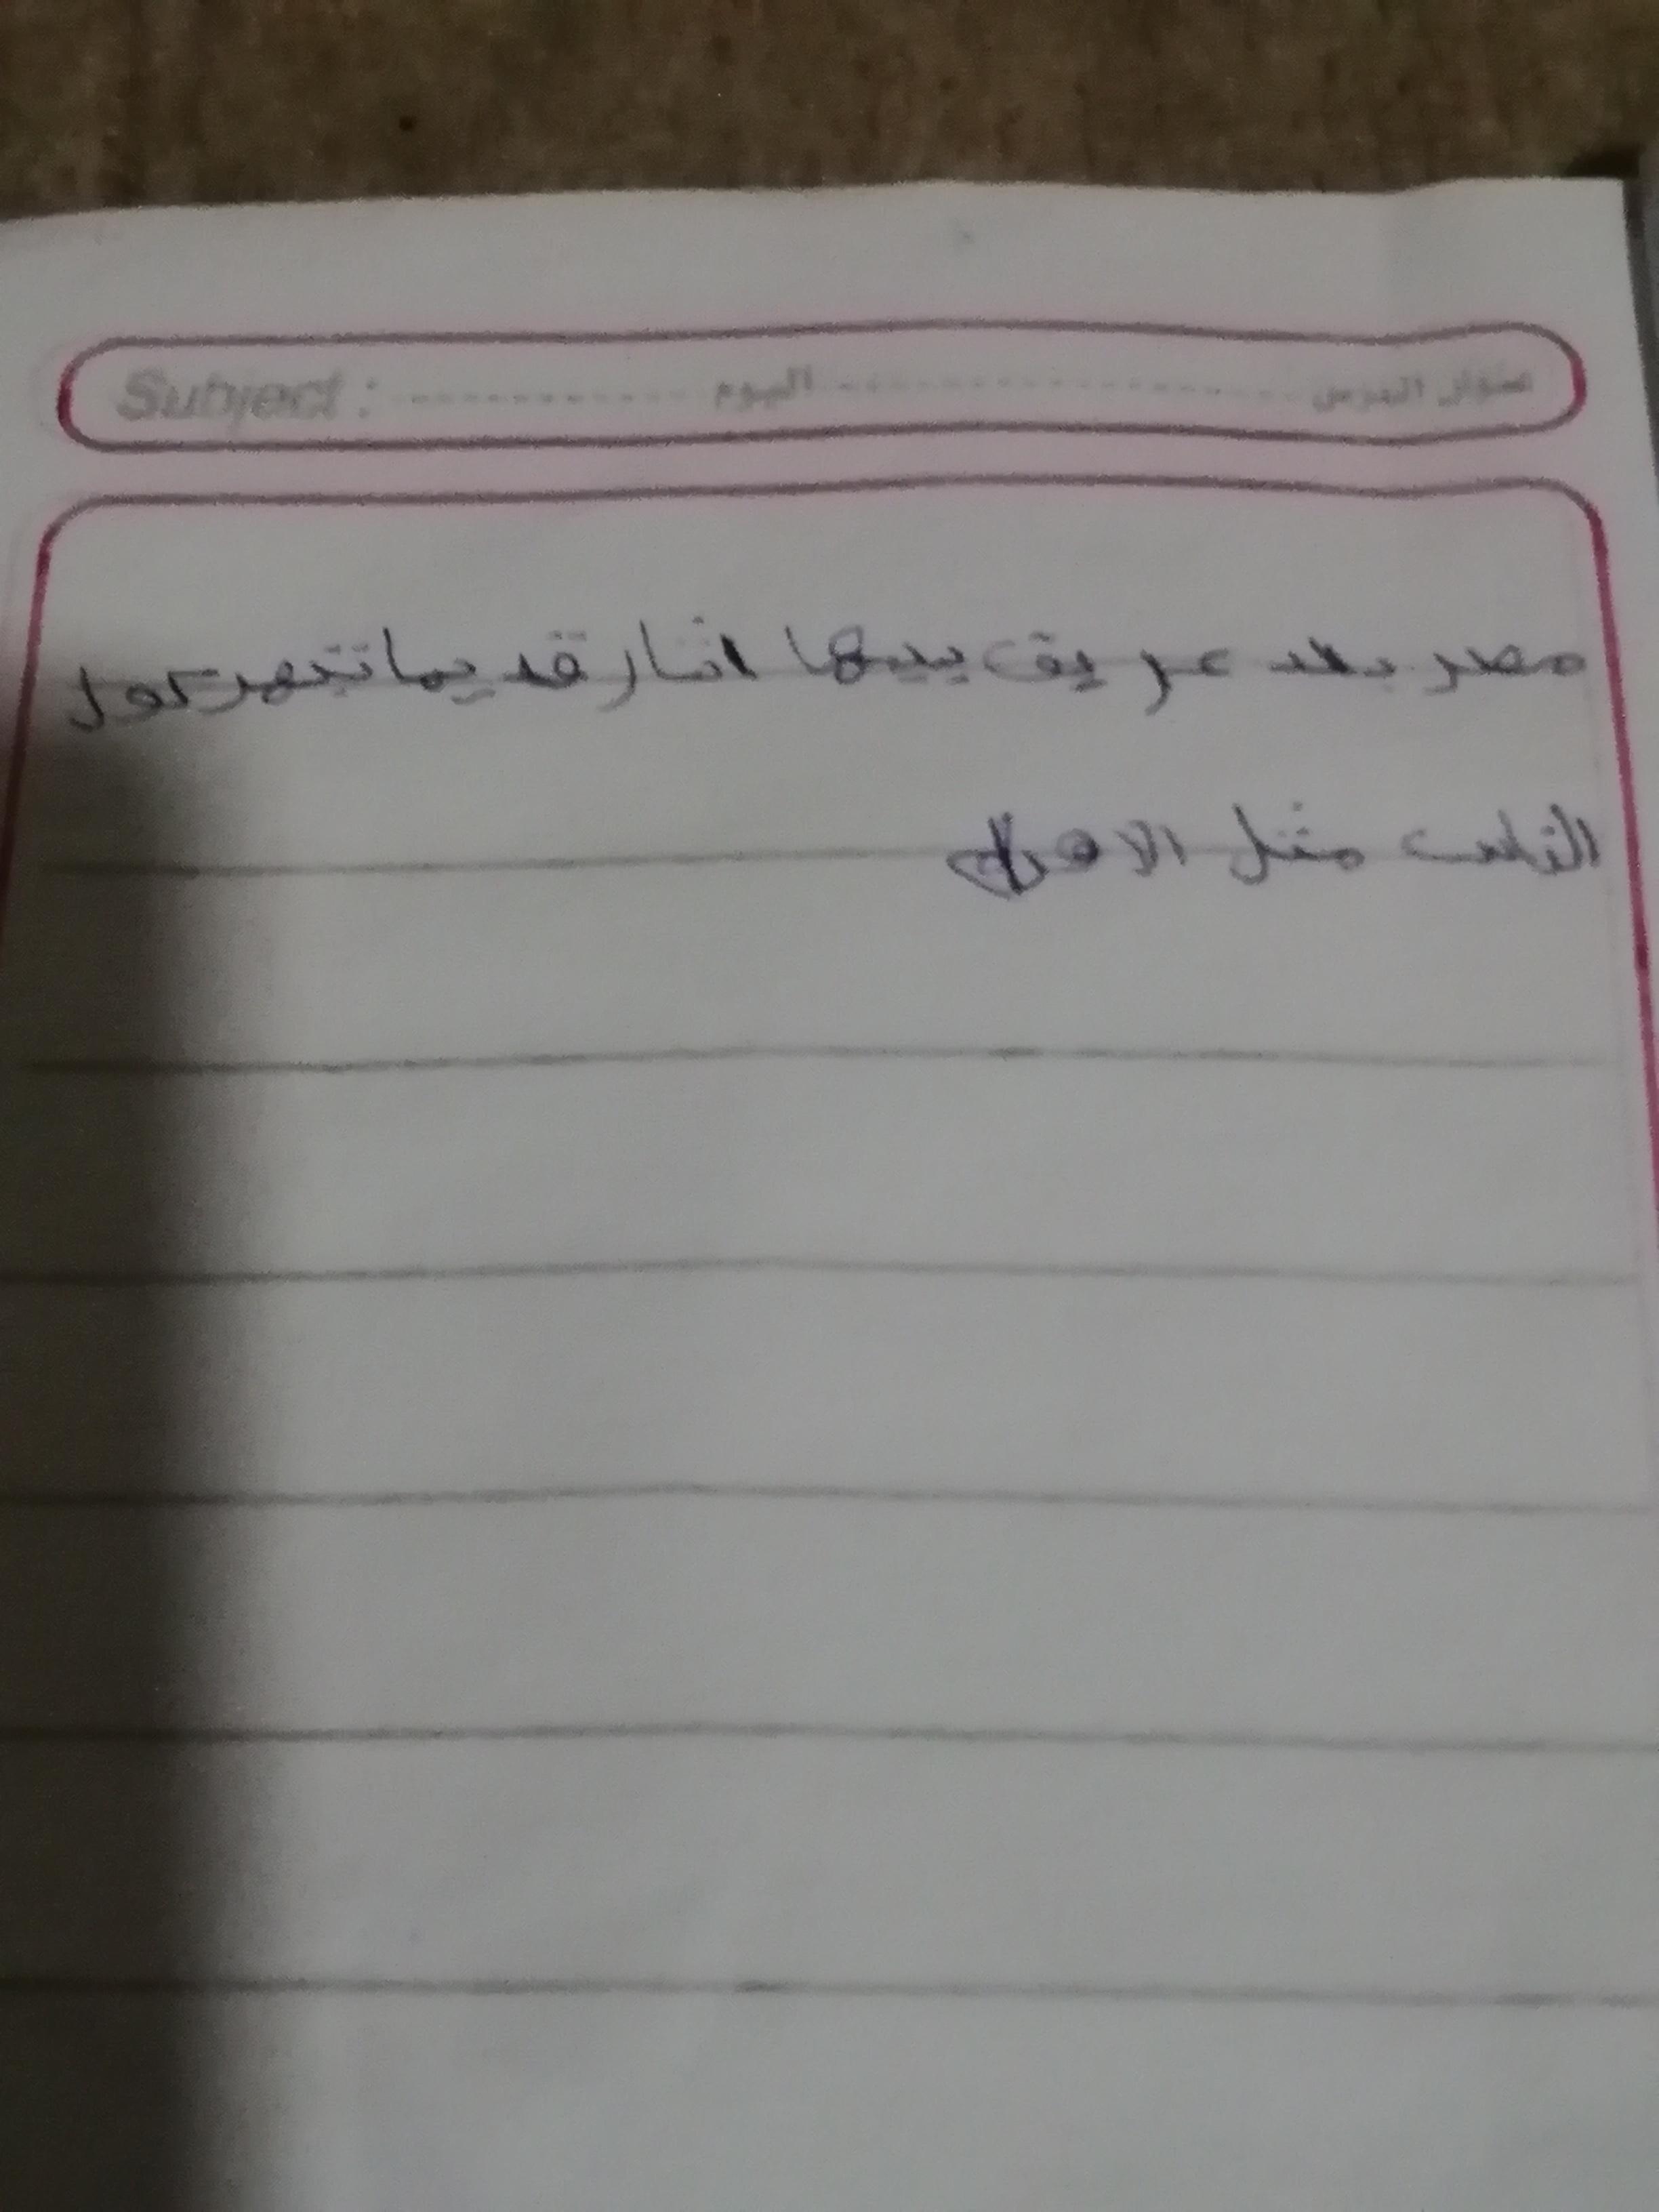 عنوان الدرس اليوم Subject :
مصر بلد عريق بيها اثار قديما تبهر كول
الناس مثل الاهرام